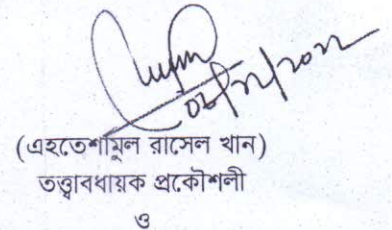 (এহতেশামুল রাসেল খান)
তত্ত্বাবধায়ক প্রকৌশলী
ও